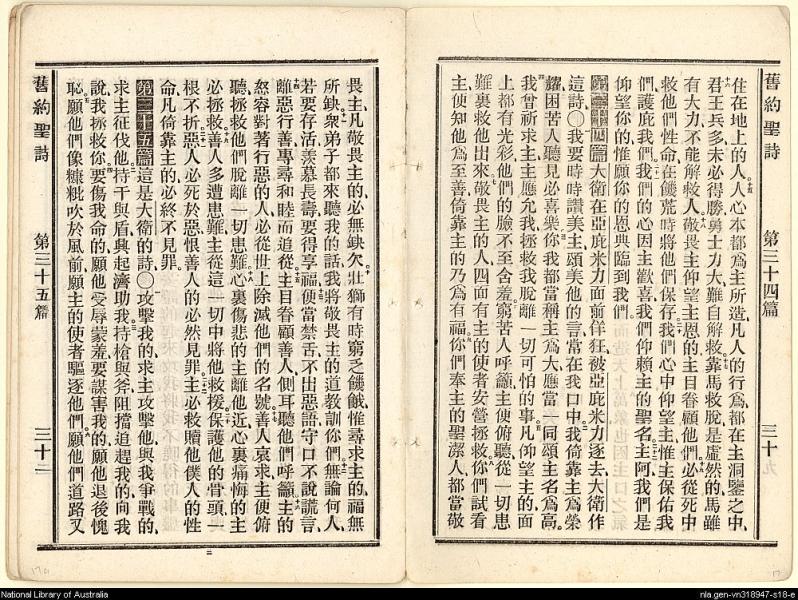 舊約聖詩 第三十四篇 三十九
住在地上的人人心本都爲主所造凡人的行爲都在主洞鑒之中
君王兵多未必得勝勇士力大難自解救靠馬救脫是虛然的馬雖
有大力不能解救人敬畏主仰望主恩的主目眷顧他們必從死中
救他們性命在饑荒時將他們保存我們心中仰望主惟主保佑我
們護庇我們我們的心因主歡喜我們仰賴主的聖名主阿我們是
仰望你的惟願你的恩典臨到我們
第三十四篇大衛在亞庇米力面前佯狂被亞庇米力逐去大衛作
這詩〇我要時時讚美主頌美他的言常在我口中我倚靠主爲榮
耀困苦人聽見必喜樂你我都當稱主爲大應當一同頌主名爲高
我曾祈求主主應允我拯救我脫離一切可怕的事凡仰望主的面
上都有光彩他們的臉不至含羞窮苦人呼籲主便俯聽從一切患
難裏救他出來敬畏主的人四面有主的使者安營拯救你們試看
主便知他爲至善倚靠主的乃爲有福你們奉主的聖潔人都當敬
畏主凡敬畏主的必無缺欠壯獅有時窮乏饑餓惟尋求主的福無
所缺衆弟子都來聽我的話我將敬畏主的道教訓你們無論何人
若要存活羨慕長壽要得享福便當禁舌不出惡語守口不說謊言
離惡行善專尋和睦而追從主目眷顧善人側耳聽他們呼籲主的
怒容對著行惡的人必從世上除滅他們的名號善人哀求主便俯
聽拯救他們脫離一切患難心裏傷悲的主離他近心裏痛悔的主
必拯救善人多遭患難主從這一切中將他救援保護他的骨頭一
根不折惡人必死於惡恨善人的必然見罪主必救贖他僕人的性
命凡倚靠主的必終不見罪
第三十五篇這是大衛的詩〇攻擊我的求主攻擊他與我爭戰的
求主征伐他持干與盾興起濟助我持槍與斧阻擋追趕我的向我
說我拯救你要傷我命的願他受辱蒙羞要謀害我的願他退後愧
恥願他們像糠粃吹於風前願主的使者驅逐他們願他們道路又
舊約聖詩 第三十五篇 三十二
National Library of Australia
nla.gen-vn318947-s18-e